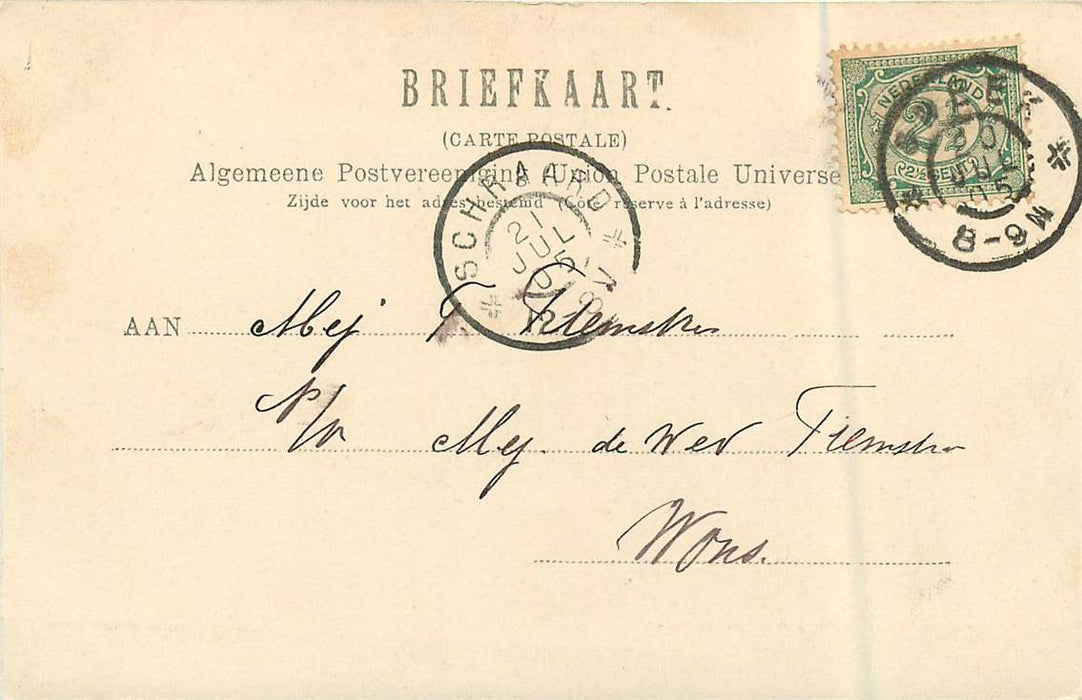 BRIEFKAART.
(CARTE POSTALE)
Algemeene Postvereeniging (Union Postale Universe
Zijde voor het adres bestemd (Côté réserve à l'adresse)
NEDERLAND
2½
20
JUL
05
8-9M
SCHRAARD
21
JUL
05
AAN Mej T
P/a Mej. de Wed Tiemstra
Wons.